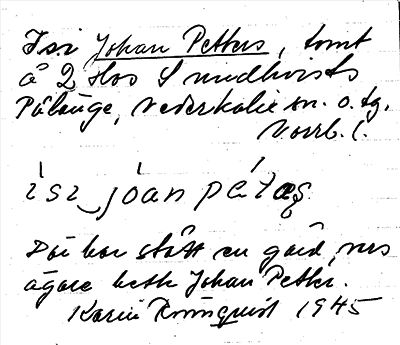 I si Johan Petters, tomt
å 2 Hos Sundkvists
Pålänge, Nederkalix sn. o. tg.
Norrb. l.
ìsı‿jòan pétəs
Där har stått en gård, vars
ägare hette Johan Petter.
Karin Rönnquist 1945